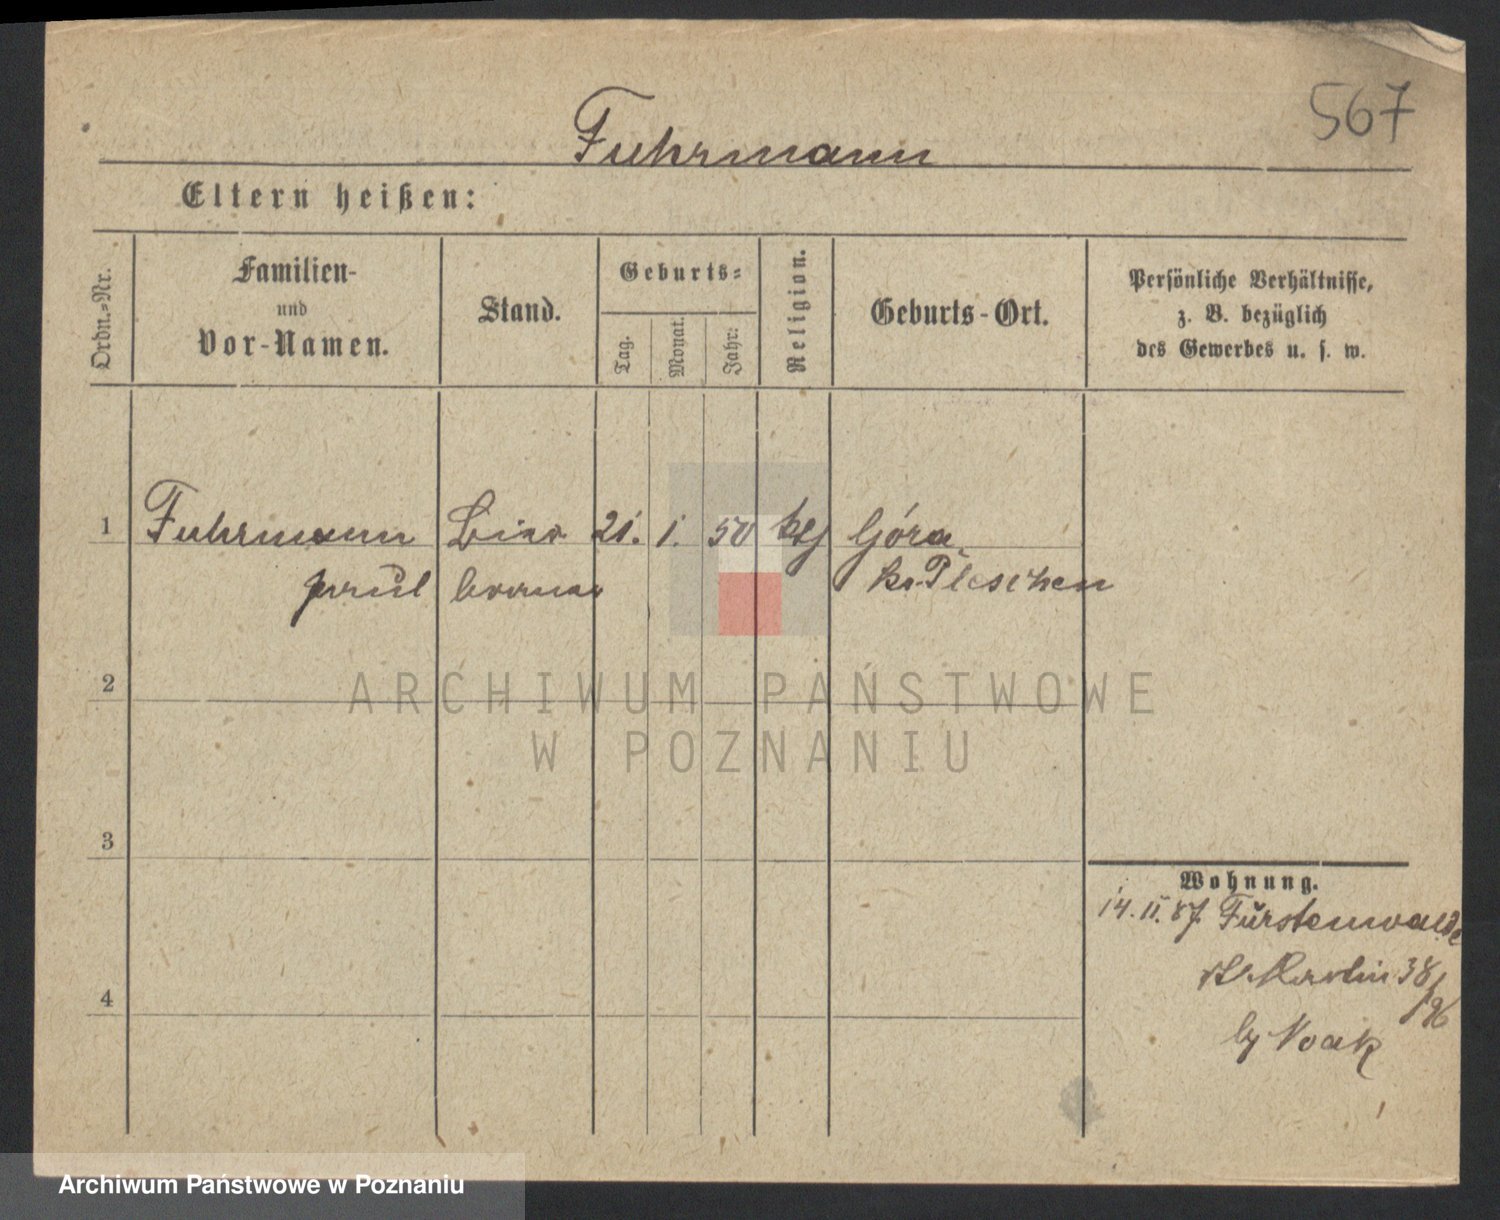 567
Fuhrmann
Eltern heißen:
Ordn.-Nr.
Familien-
und
Vor-Namen.
Stand.
Geburts-
Tag.
Monat.
Jahr:
Religion.
Geburts-Ort.
Persönliche Verhältnisse,
z. B. bezüglich
des Gewerbes u. s. w.
1 Fuhrmann Bier 21. 1. 50 ktl Góra
paul brauer kr. Pleschen
2
ARCHIWUM PAŃSTWOWE
W POZNANIU
3
Wohnung.
14. 11. 87. Fürstenwalde
St Martin 38/
96
by Noak
4
Archiwum Państwowe w Poznaniu